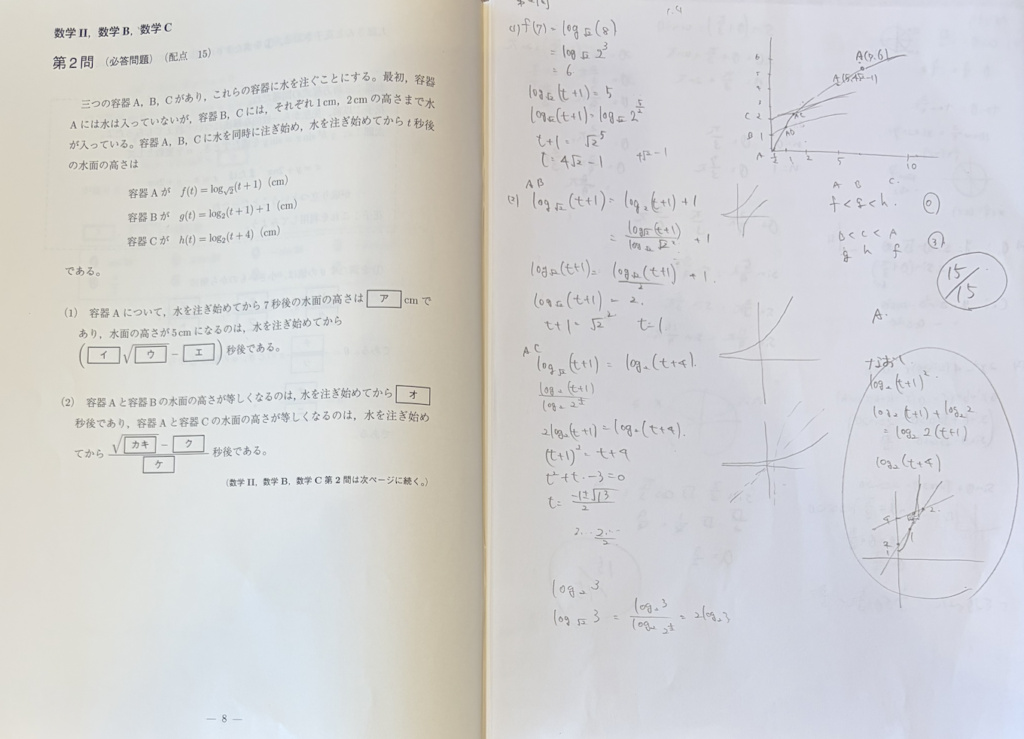 数学Ⅱ,数学B,数学C
第2問 (必答問題) (配点 15)
三つの容器A,B,Cがあり,これらの容器に水を注ぐことにする。最初,容器
Aには水は入っていないが,容器B,Cには,それぞれ1cm,2cmの高さまで水
が入っている。容器A,B,Cに水を同時に注ぎ始め,水を注ぎ始めてからt秒後
の水面の高さは
容器Aが f(t)=log√2(t+1) (cm)
容器Bが g(t)=log2(t+1)+1 (cm)
容器Cが h(t)=log2(t+4) (cm)
である。
(1) 容器Aについて,水を注ぎ始めてから7秒後の水面の高さは ア cmで
あり,水面の高さが5cmになるのは,水を注ぎ始めてから
(イ√ウ-エ)秒後である。
(2) 容器Aと容器Bの水面の高さが等しくなるのは,水を注ぎ始めてから オ
秒後であり,容器Aと容器Cの水面の高さが等しくなるのは,水を注ぎ始め
てから (√カキ-ク)/ケ 秒後である。
(数学Ⅱ,数学B,数学C第2問は次ページに続く。)
— 8 —
(1) f(7)=log√2(8)
=log√2 2^3
=6
log√2(t+1)=5
t+1=√2^5
t=4√2-1
4√2-1
AB
(2) log√2(t+1)=log2(t+1)+1
=log√2(t+1)/log√2 √2^2+1
log√2(t+1)=2.
t+1=√2^2 t=1
AC
log√2(t+1)=log2(t+4).
log2(t+1)/log2 2^(1/2)
2log2(t+1)=log2(t+4).
(t+1)^2=t+4
t^2+t-3=0
t=(-1±√13)/2
log2 3
log√2 3=log2 3/log2 2^(1/2)=2log2 3
A(7,6)
A(4√2-1)
5
10
A B C.
f<g<h. ⓪
B<C<A
g h f ③
15/15
A.
log2(t+1)^2.
log2(t+1)+log2 2
=log2 2(t+1)
log2(t+4)